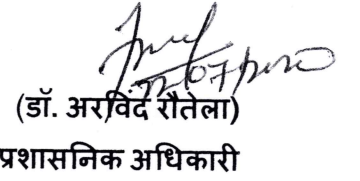 (डॉ. अरविंद रौतेला)
प्रशासनिक अधिकारी